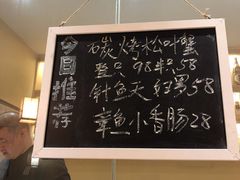 今日推荐
石炭烤松叶蟹
整只98半只58
针鱼天妇罗58
章鱼小香肠28